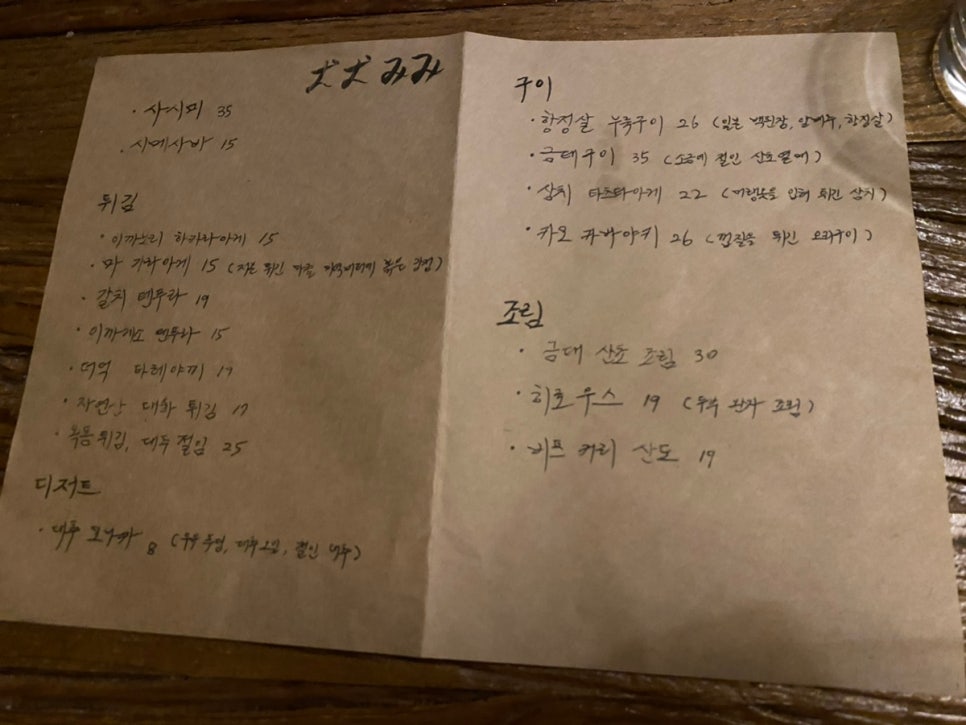 犬犬 みみ
· 사시미 35
· 시메사바 15
튀김
· 이까노리 하카라아게 15
· 마 가라아게 15 (
· 갈치 텐푸라 19
· 이까게소 텐푸라 15
· 더덕 타레야끼 17
· 자연산 대하 튀김 17
· 옥돔 튀김, 대추 절임 25
디저트
· 대추 모나카 8 (우유 푸딩, 대추 , 절인 대추)
구이
· 항정살 누룩구이 26 (일본 백된장, 항정살)
· 금태구이 35 (소금에 절인 산초열매)
· 삼치 타츠타아게 22 (입혀 튀긴 삼치)
· 카모 카바야키 26 (껍질을 튀긴 오리구이)
조림
· 금태 산초 조림 30
· 히로우스 19 (두부 완자 조림)
· 비프 커리 산도 19